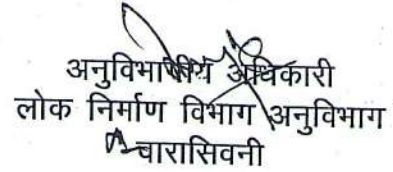 अनुविभागीय अधिकारी
लोक निर्माण विभाग अनुविभाग
वारासिवनी